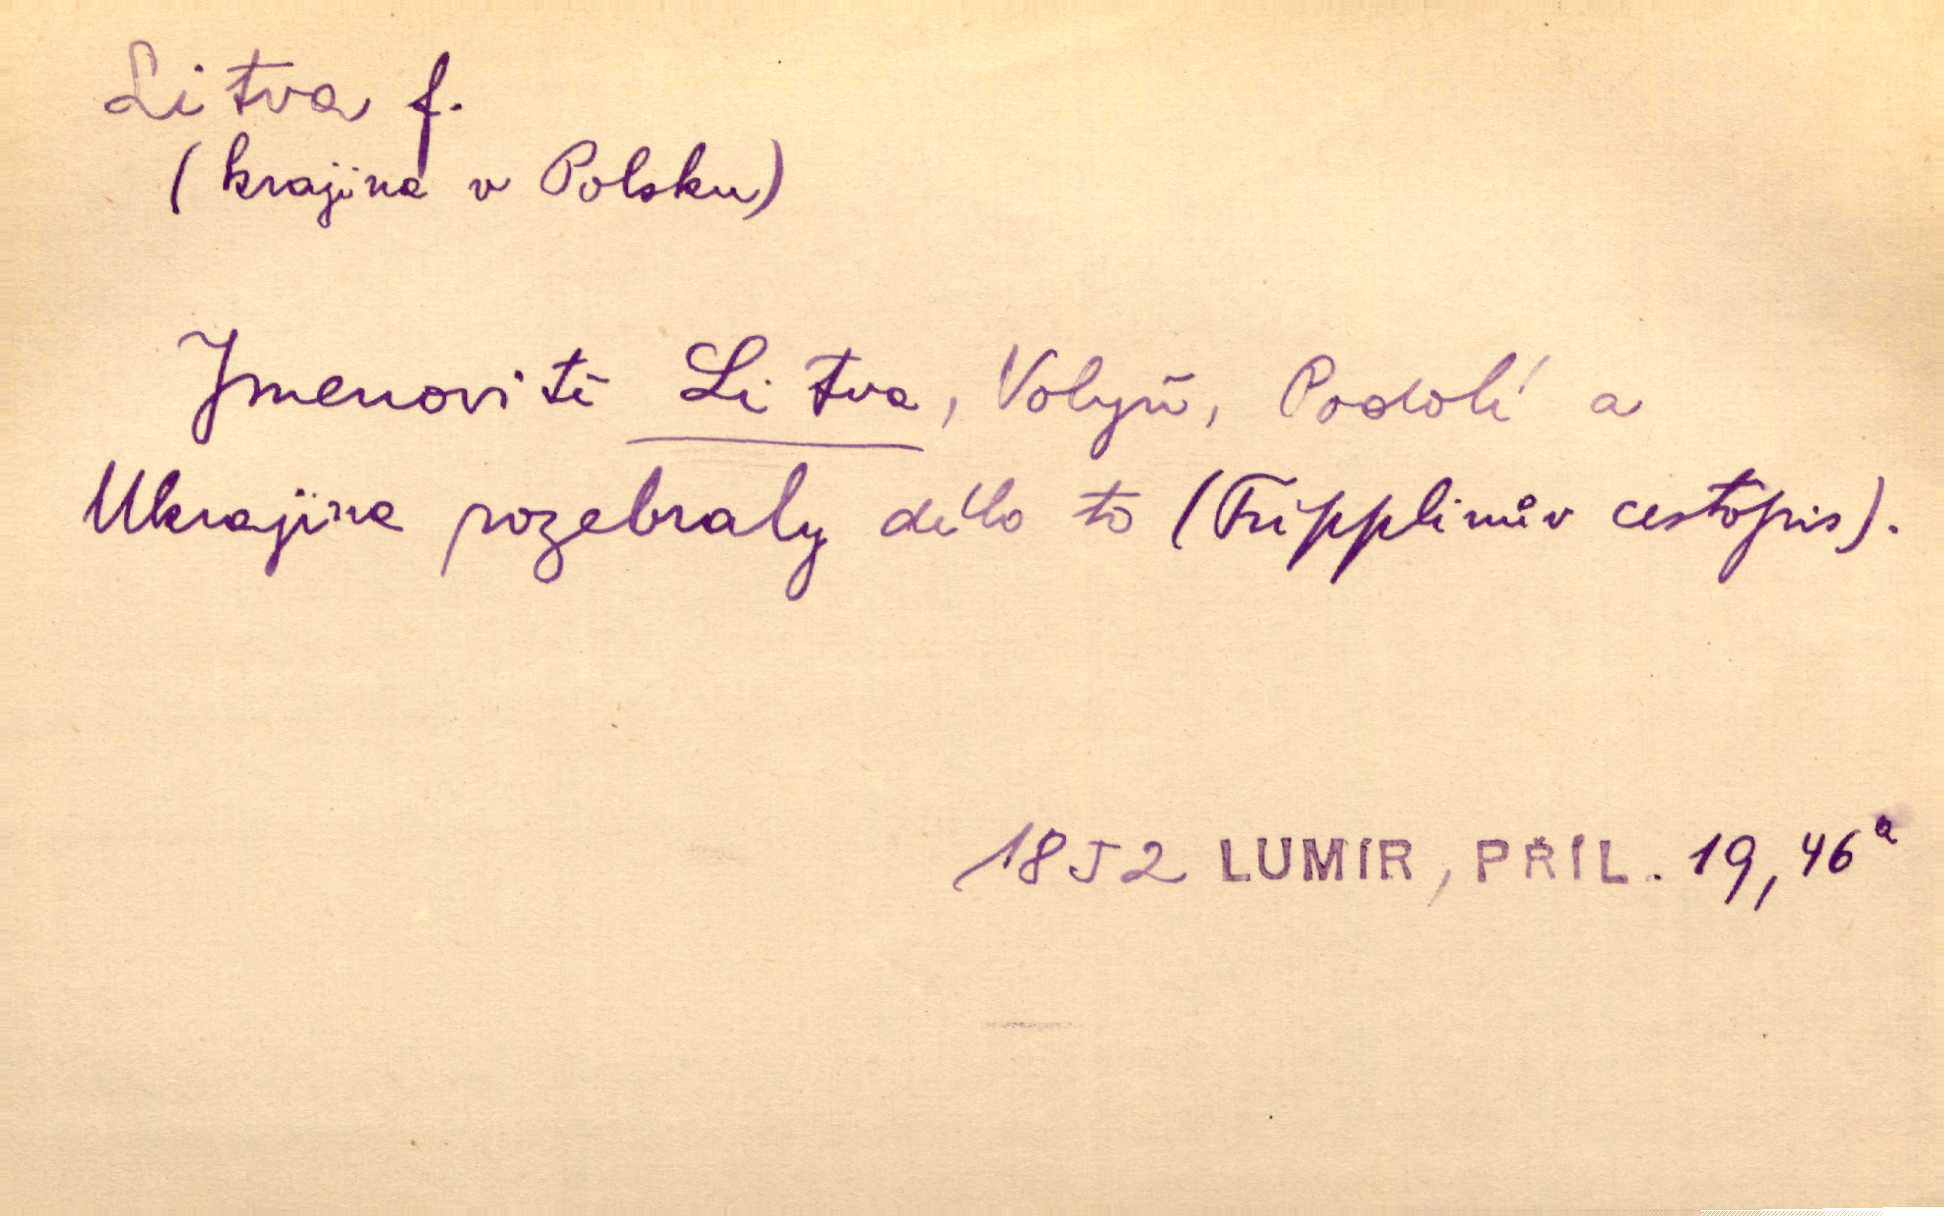 Litva f.
(krajina v Polsku)
Jmenovitě Litva, Volyň, Podolí a
Ukrajina rozebraly dílo to (Tripplinův cestopis).
1852 LUMÍR, PŘÍL. 19, 46a